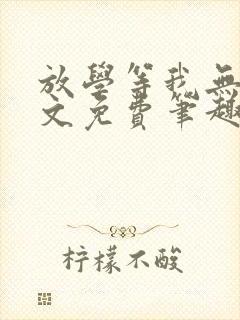 放學等我無
文免費筆趣
柠檬不酸